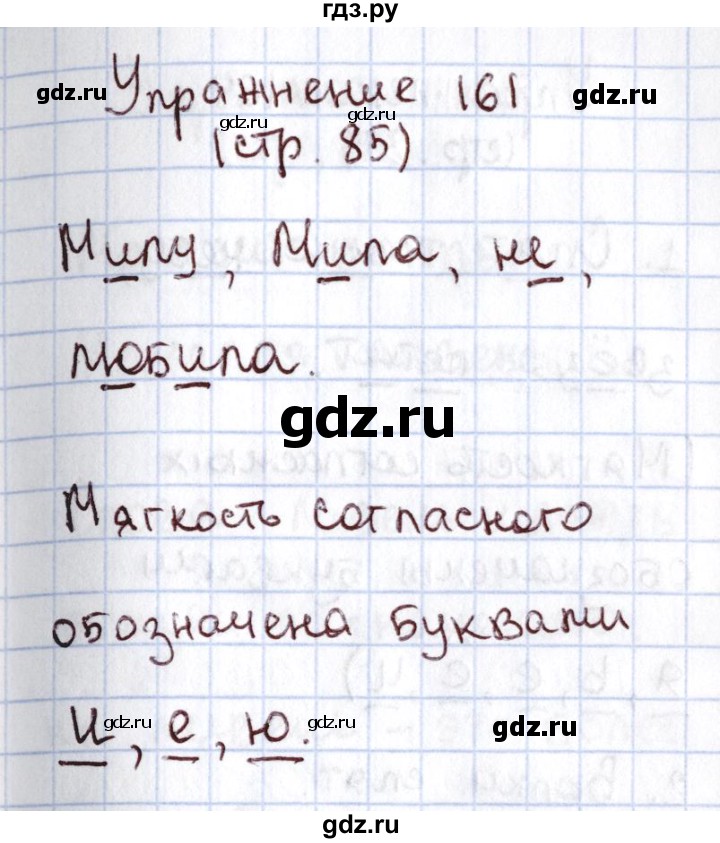 гдз.ру
Упражнение 161
gdz.ru gdz.ru gdz.ru gdz.ru
(стр. 85).
Милу, Мила, не,
любила.
gdz.ru
Мягкость согласного
обозначена буквами
и, е, ю.
gdz.ru gdz.ru gdz.ru gdz.ru
gdz.ru